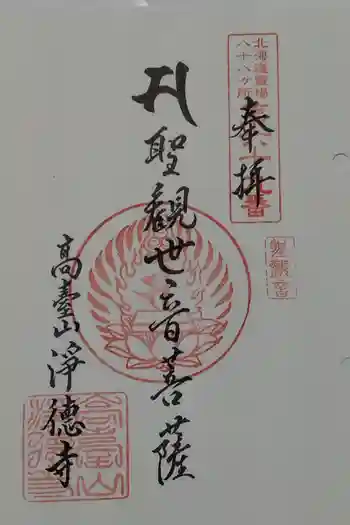 北海道霊場
八十八ヶ所
奉拝
聖観世音菩薩
高臺山淨徳寺